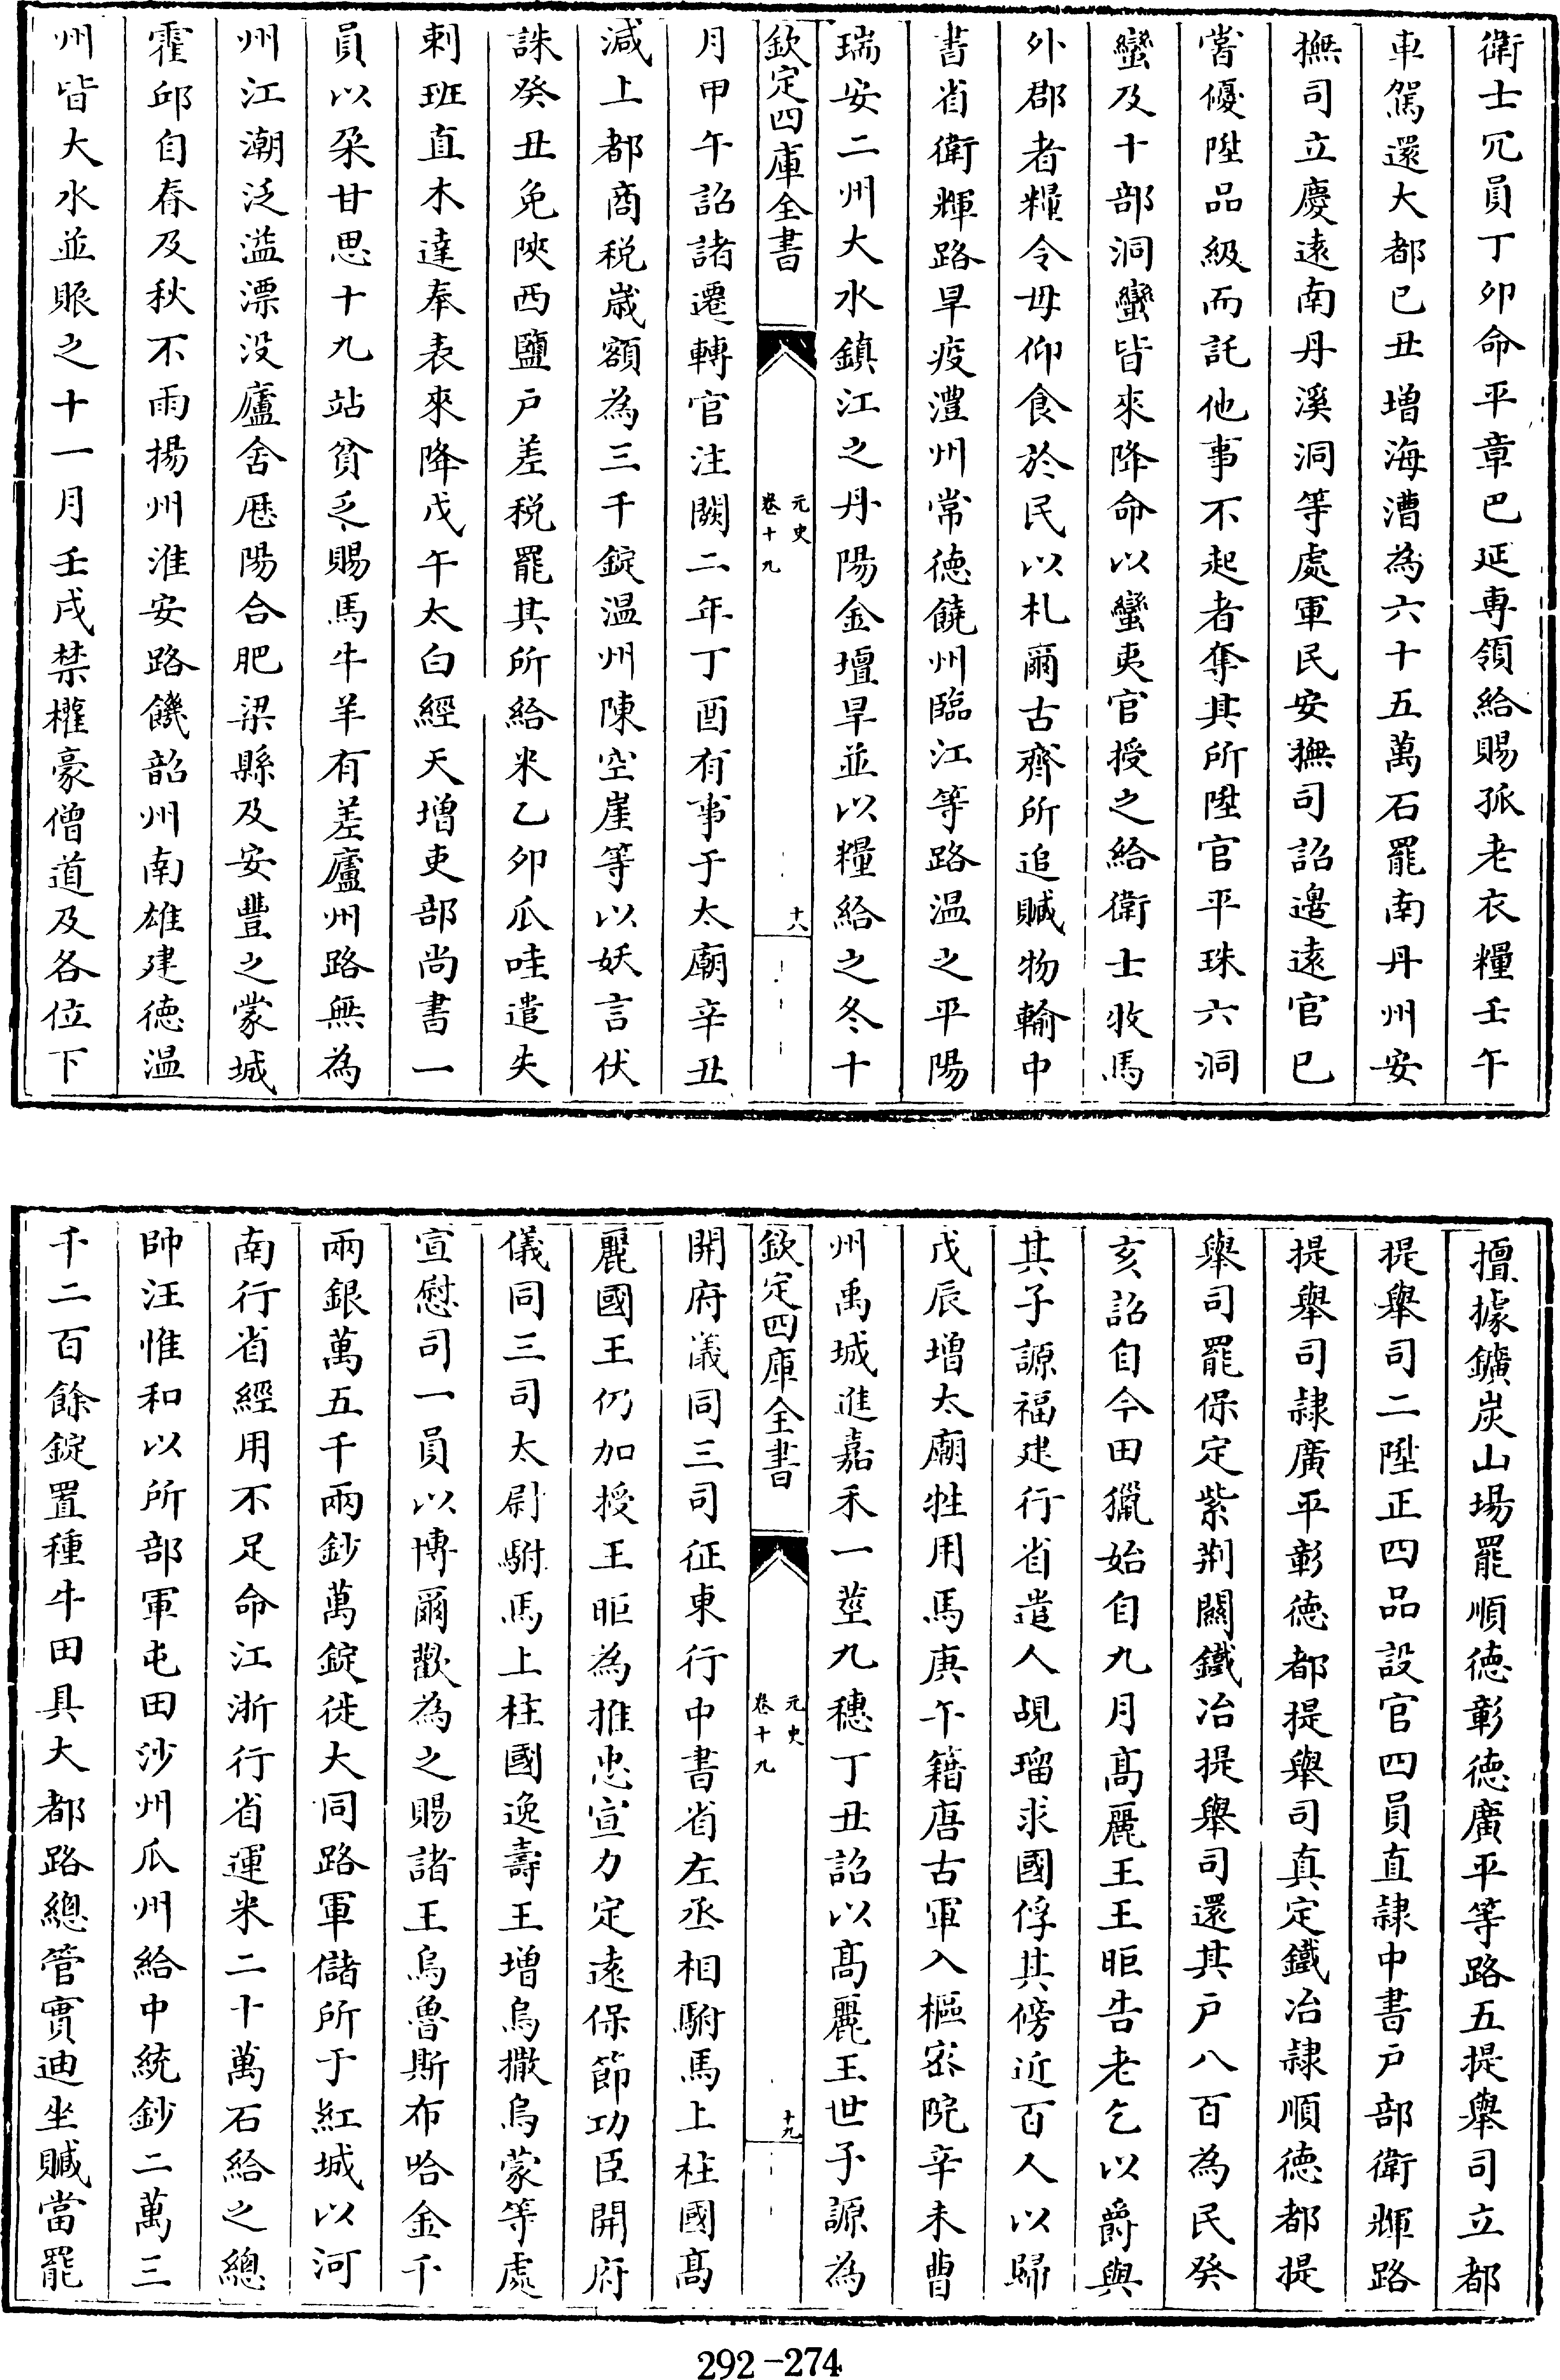 衛士冗員丁夘命平章巴延専領給賜孤老衣糧壬午
車駕還大都已丑増海漕為六十五萬石罷南丹州安
撫司立慶逺南丹溪洞等處軍民安撫司詔邉逺官已
嘗優陞品級而託他事不起者奪其所陞官平珠六洞
蠻及十部洞蠻皆來降命以蠻夷官授之給衛士牧馬
外郡者糧令毋仰食於民以札爾古齊所追贓物輸中
書省衛輝路旱疫澧州常徳饒州臨江等路温之平陽
瑞安二州大水鎮江之丹陽金壇旱並以糧給之冬十
欽定四庫全書
元史
卷十九
十八
月甲午詔諸遷轉官注闕二年丁酉有事于太廟辛丑
減上都商税歳額為三千錠温州陳空崖等以妖言伏
誅癸丑免陜西鹽户差税罷其所給米乙夘瓜哇遣失
剌班直木達奉表來降戊午太白經天増吏部尚書一
員以朶甘思十九站貧乏賜馬牛羊有差廬州路無為
州江潮泛溢漂没廬舍厯陽合肥梁縣及安豐之蒙城
霍邱自春及秋不雨揚州淮安路饑韶州南雄建徳温
州皆大水並賑之十一月壬戌禁權豪僧道及各位下
擅據鑛炭山場罷順徳彰徳廣平等路五提舉司立都
提舉司二陞正四品設官四員直隷中書户部衛輝路
提舉司隷廣平彰徳都提舉司真定鐵冶隷順徳都提
舉司罷保定紫荆闗鐵冶提舉司還其户八百為民癸
亥詔自今田獵始自九月髙麗王王昛告老乞以爵與
其子謜福建行省遣人覘瑠求國俘其傍近百人以歸
戊辰増太廟牲用馬庚午籍唐古軍入樞宻院辛未曹
州禹城進嘉禾一莖九穗丁丑詔以髙麗王世子謜為
欽定四庫全書
元史
卷十九
十九
開府儀同三司征東行中書省左丞相駙馬上柱國髙
麗國王仍加授王昛為推忠宣力定逺保節功臣開府
儀同三司太尉駙馬上柱國逸壽王増烏撒烏蒙等處
宣慰司一員以博爾歡為之賜諸王烏魯斯布哈金千
兩銀萬五千兩鈔萬錠徙大同路軍儲所于紅城以河
南行省經用不足命江浙行省運米二十萬石給之總
帥汪惟和以所部軍屯田沙州瓜州給中統鈔二萬三
千二百餘錠置種牛田具大都路總管實迪坐贓當罷
292-274